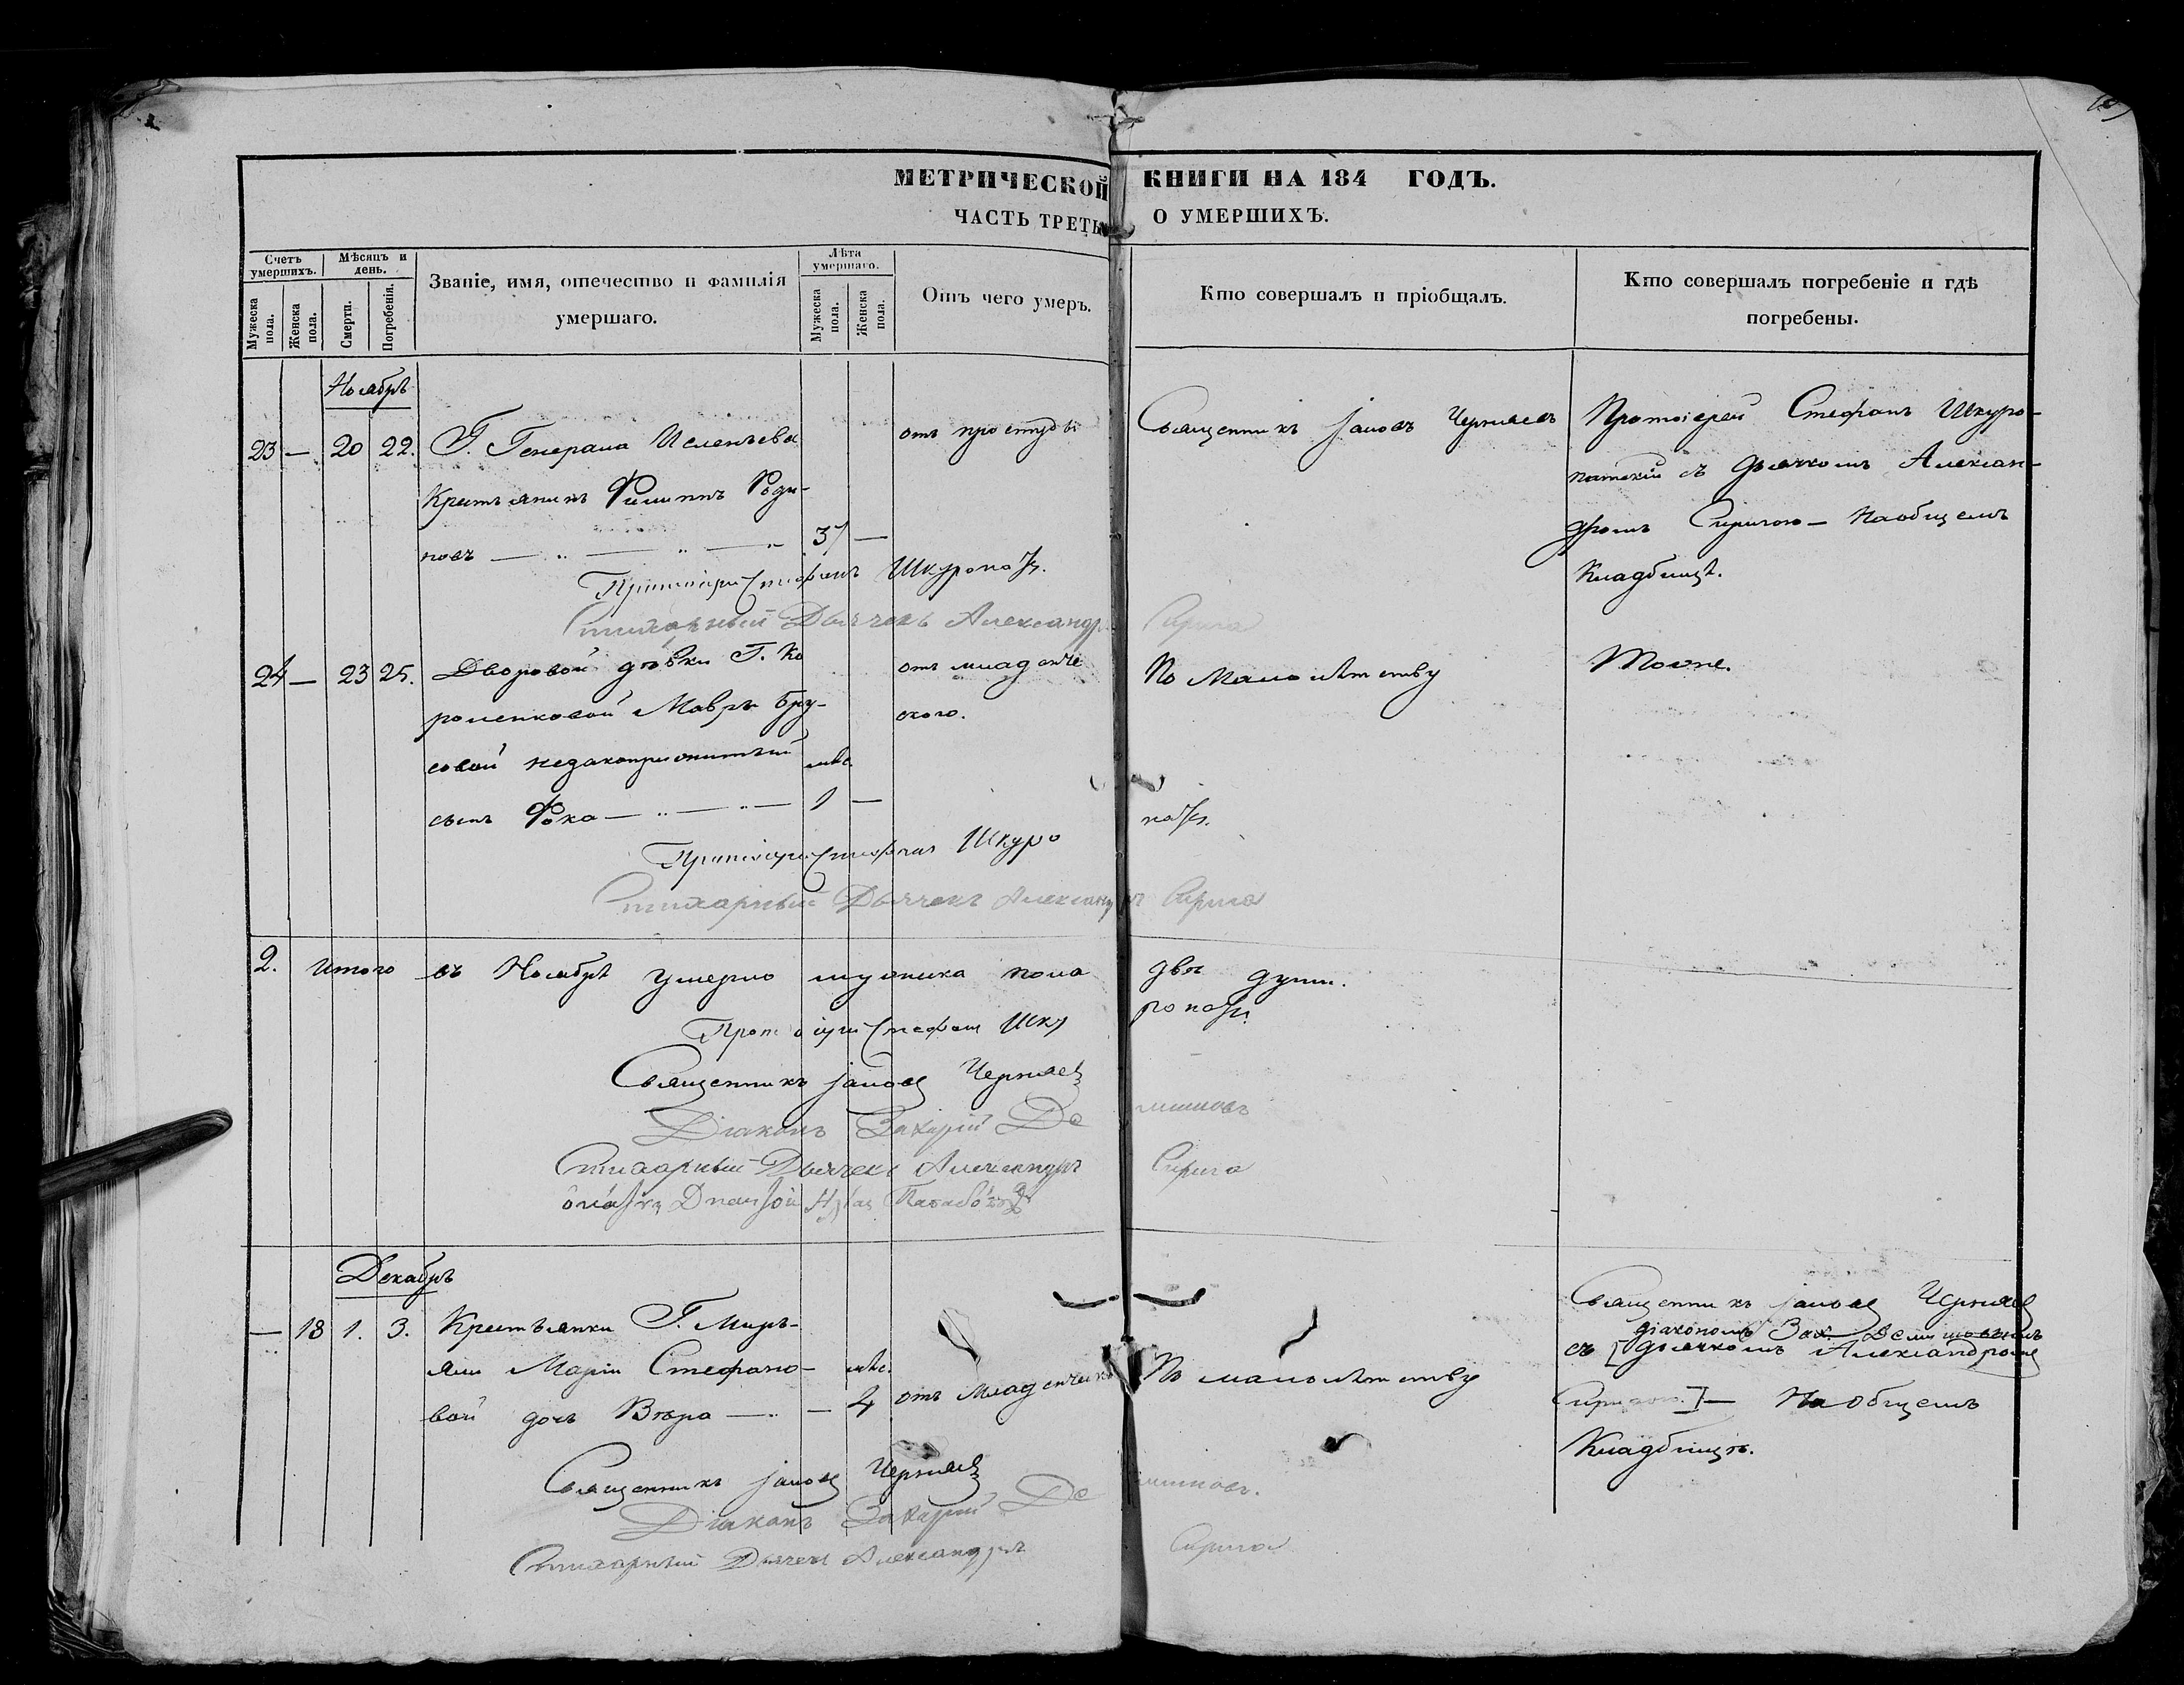 МЕТРИЧЕСКОЙ КНИГИ НА 184 ГОДЪ.
ЧАСТЬ ТРЕТЬ О УМЕРШИХЪ.
Счетъ умершихъ.
Мужеска пола.
Женска пола.
Мѣсяцъ и день.
Смерти.
Погребенія.
Званіе, имя, отечество и фамилія
умершаго.
Лѣта умершаго.
Мужеска пола.
Женска пола.
Отъ чего умеръ.
Кто совершалъ и пріобщалъ.
Кто совершалъ погребеніе и гдѣ
погребены.
Ноябрь
23 — 20 22. Г. Генерала Исленьева
Крестьянинъ Филиппъ Роди-
новъ — „ — „ — „ 37 —
отъ простуды
Священникъ Іаковъ Черняевъ
Протоіерей Стефанъ Шкуро-
патскій съ дьячкомъ Алексан-
дромъ Сиригою — На общемъ
Кладбищѣ.
Протоіерей Стефанъ Шкуропат.
Стихарный Дьячекъ Александръ Сирига
24 — 23 25. Дворовой дѣвки Г. Ко
роленковой Мавры Бру-
совой незаконприжитый мѣс.
сынъ Фока — „ — „ — 1 —
отъ младенче
скаго.
По малолѣтству
Тоже.
Протоіерей Стефанъ Шкуропат.
Стихарный Дьячекъ Александръ Сирига
2. Итого въ Ноябрѣ умерло мужеска пола двѣ души.
Протоіерей Стефанъ Шкуропат.
Священникъ Іаковъ Черняевъ
Діаконъ Захарій Демишковъ
Стихарный Дьячекъ Александръ Сирига
Декабрь
— 18 1. 3. Крестьянки Г. Мирь-
яли Маріи Стефано- мѣс.
вой дочь Вѣра — „ — 4
отъ младенческ
По малолѣтству
Священникъ Іаковъ Черняевъ
діакономъ Зах.
съ [дьячкомъ Александромъ
Сиригою.] — На общемъ
Кладбищѣ.
Священникъ Іаковъ Черняевъ
Діаконъ Захарій Демишковъ.
Стихарный Дьячекъ Александръ Сирига